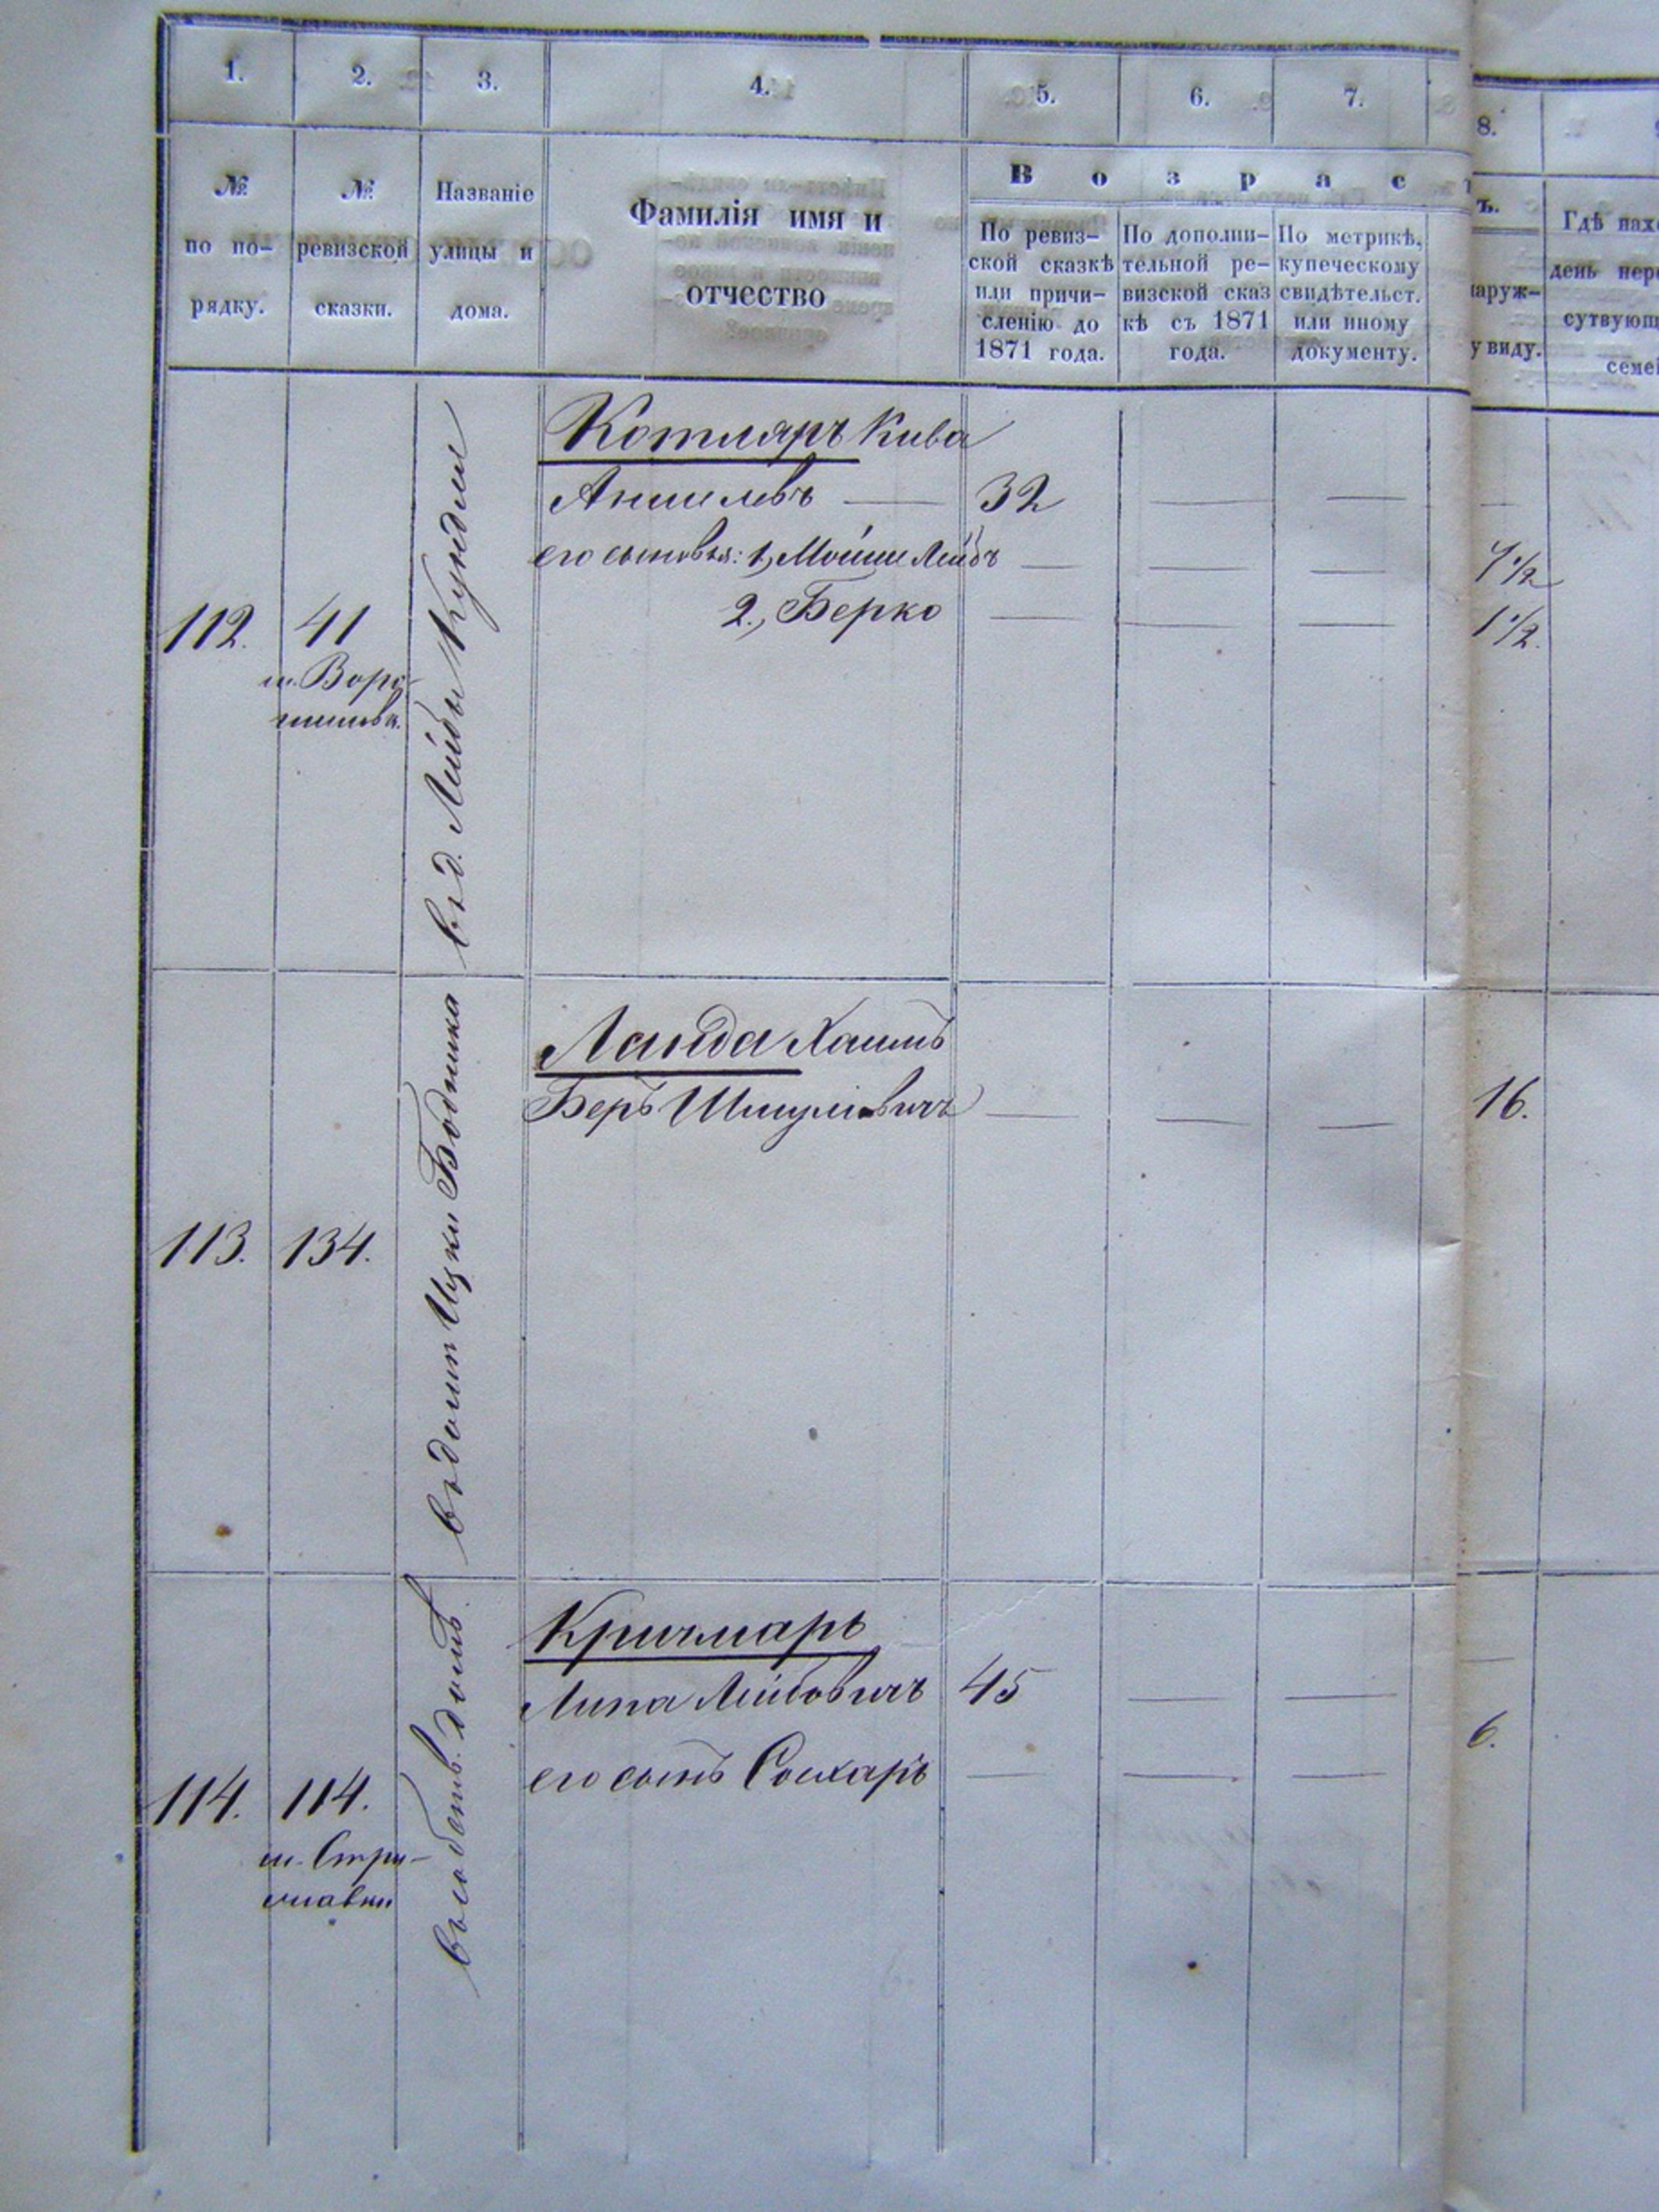 1. 2. 3. 4. 5. 6. 7. 8.
№ по порядку.
№ ревизской сказки.
Названіе улицы и дома.
Фамилія имя и отчество
В о з р а с т
ъ.
По ревизской сказкѣ или причисленію до 1871 года.
По дополнительной ревизской сказкѣ съ 1871 года.
По метрикѣ, купеческому свидѣтельст. или иному документу.
наруж-
у виду.
Гдѣ нахо
день пере
сутвующ
семей
Котляръ Кива
Аншелевъ — 32 — — —
его сыновья: 1, Мойше Лейбъ — — — 4½
2., Берко — — — 1½.
112. 41
м. Воро-
шиловк.
въ д. Лейбы Кундели
Ланда Хаимъ
Беръ Шмулевичъ — — — 16.
113. 134.
въ домѣ Ицки Бодника
Кричмаръ
Липа Лейбовичъ 45 — — —
его сынъ Сохаръ — — — 6.
114. 114.
м. Стри-
жавки
въ собств. домѣ.